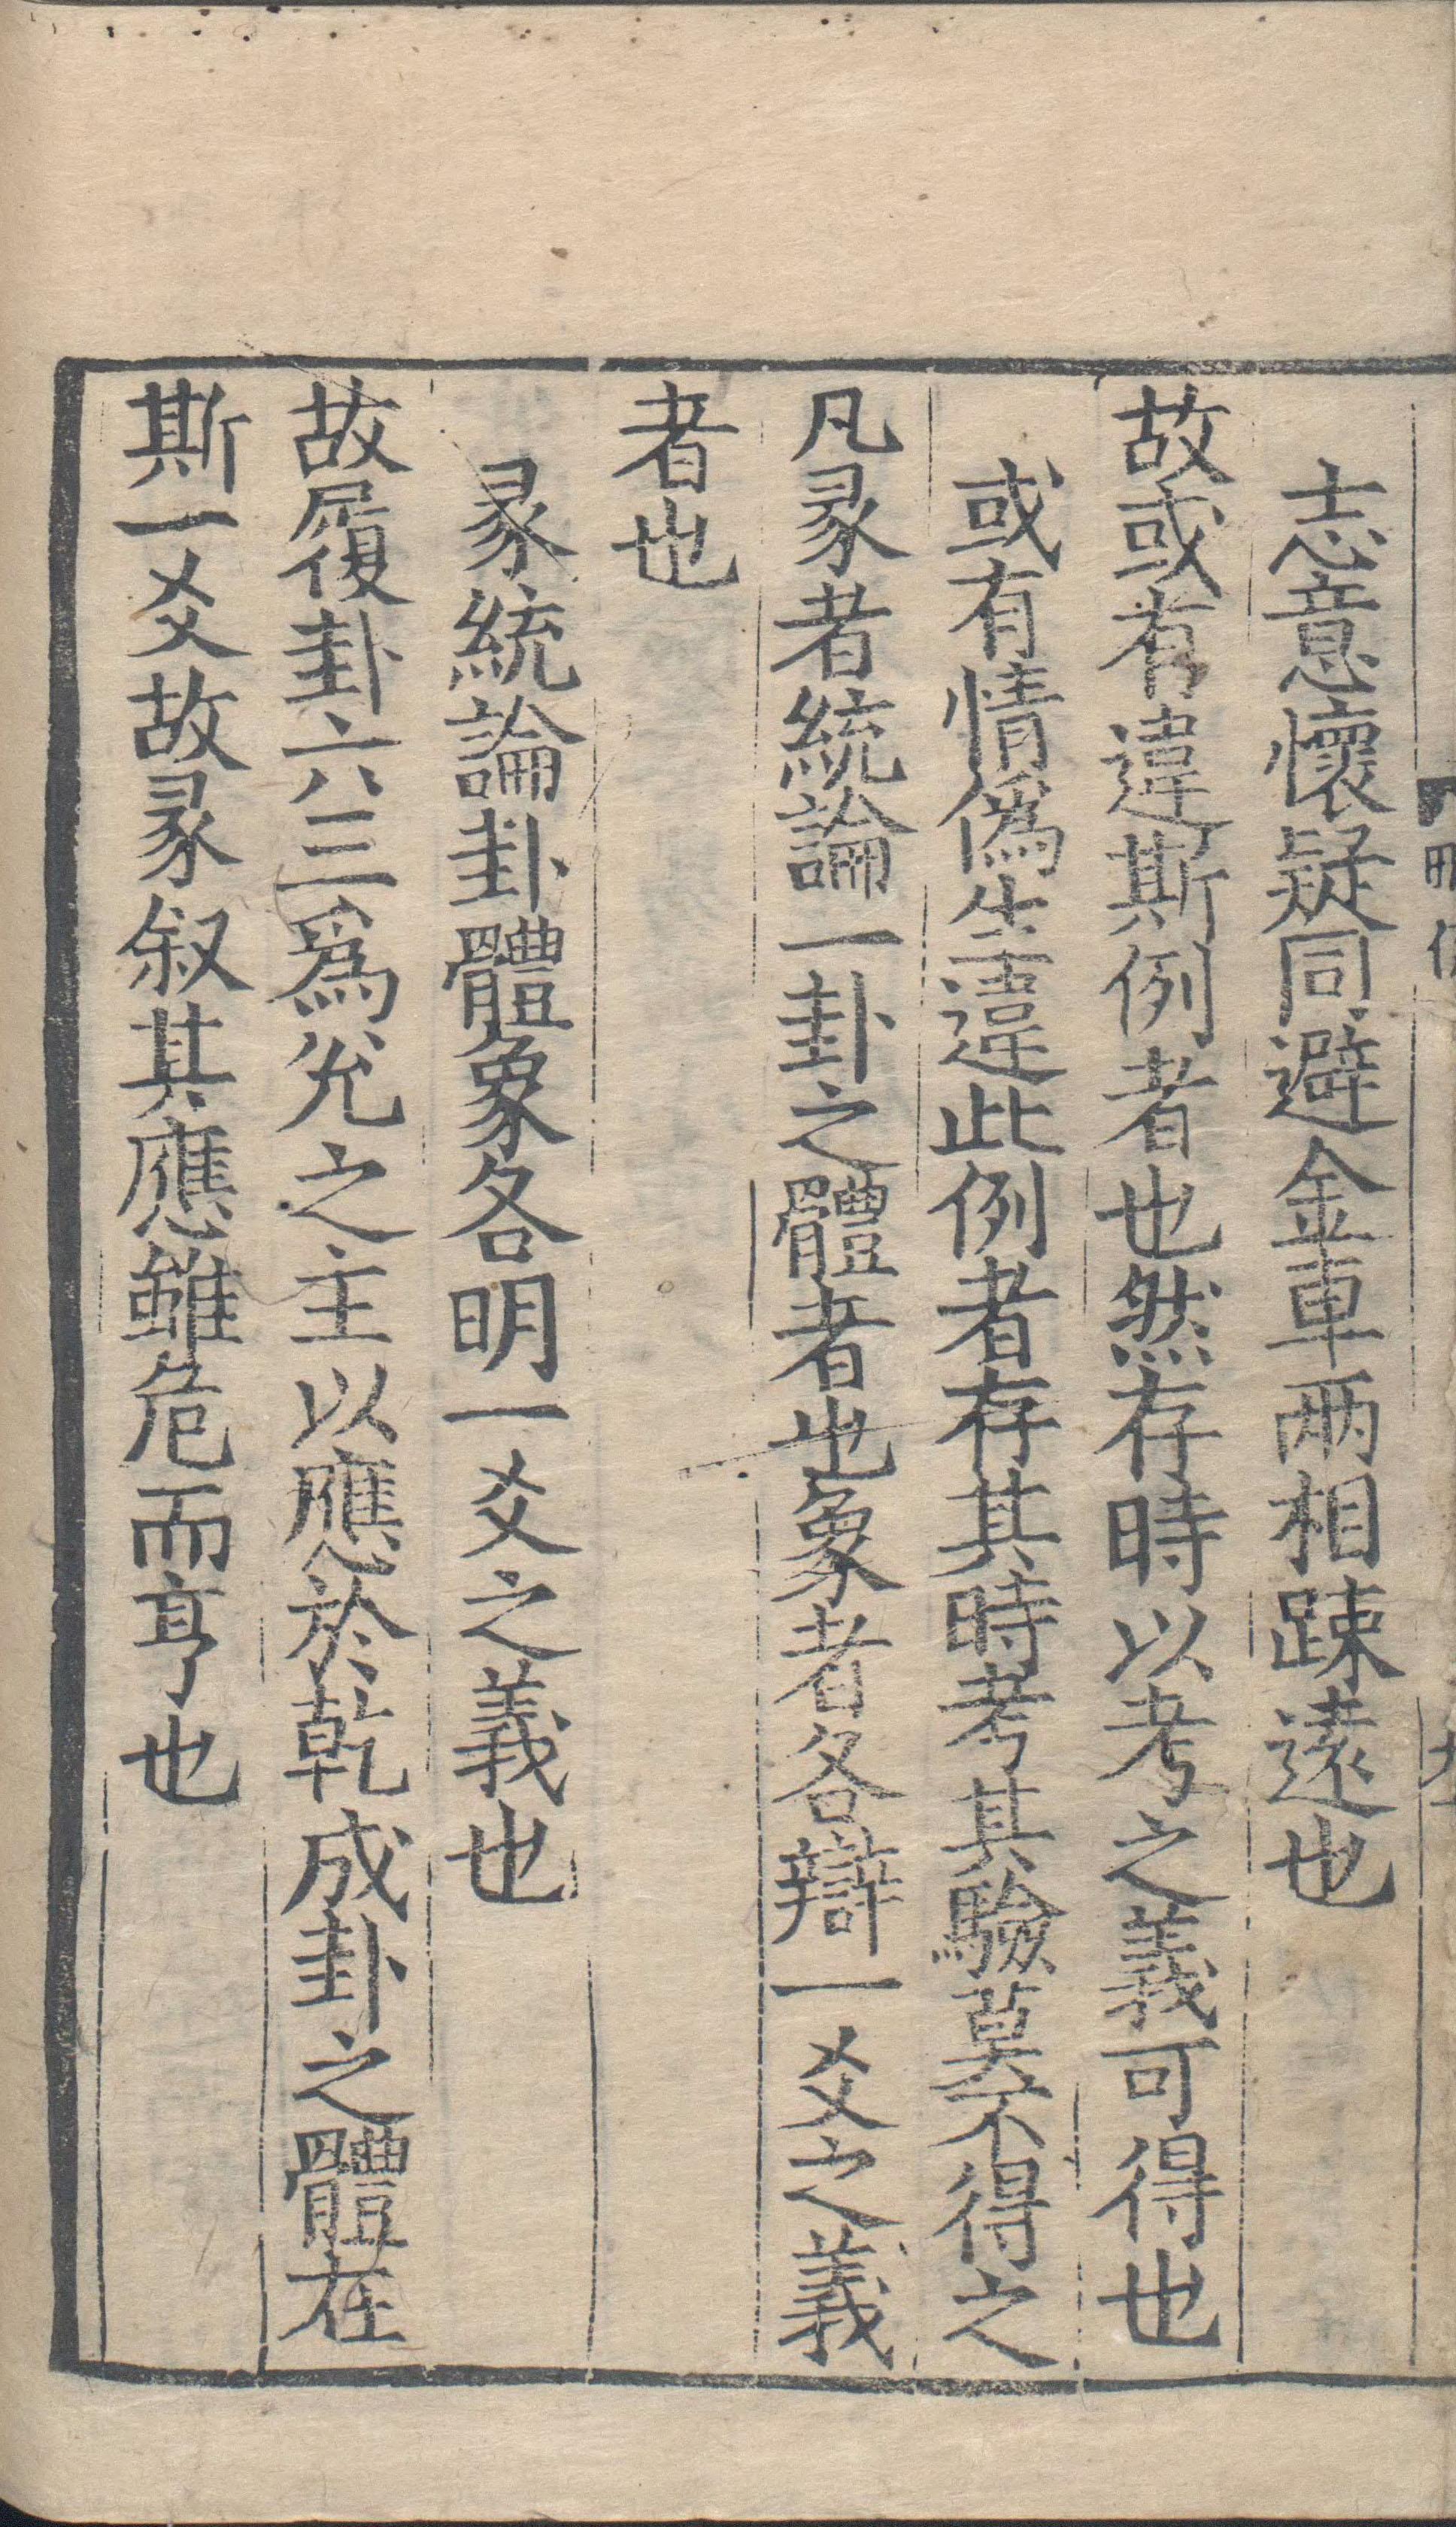 志意懷疑同避金車兩相踈遠也
故或有違斯例者也然存時以考之義可得也
或有情僞生違此例者存其時考其驗莫不得之
凡彖者統論一卦之體者也象者各辯一爻之義
者也
彖統論卦體象各明一爻之義也
故履卦六三爲兊之主以應於乾成卦之體在
斯一爻故彖叙其應雖危而亨也